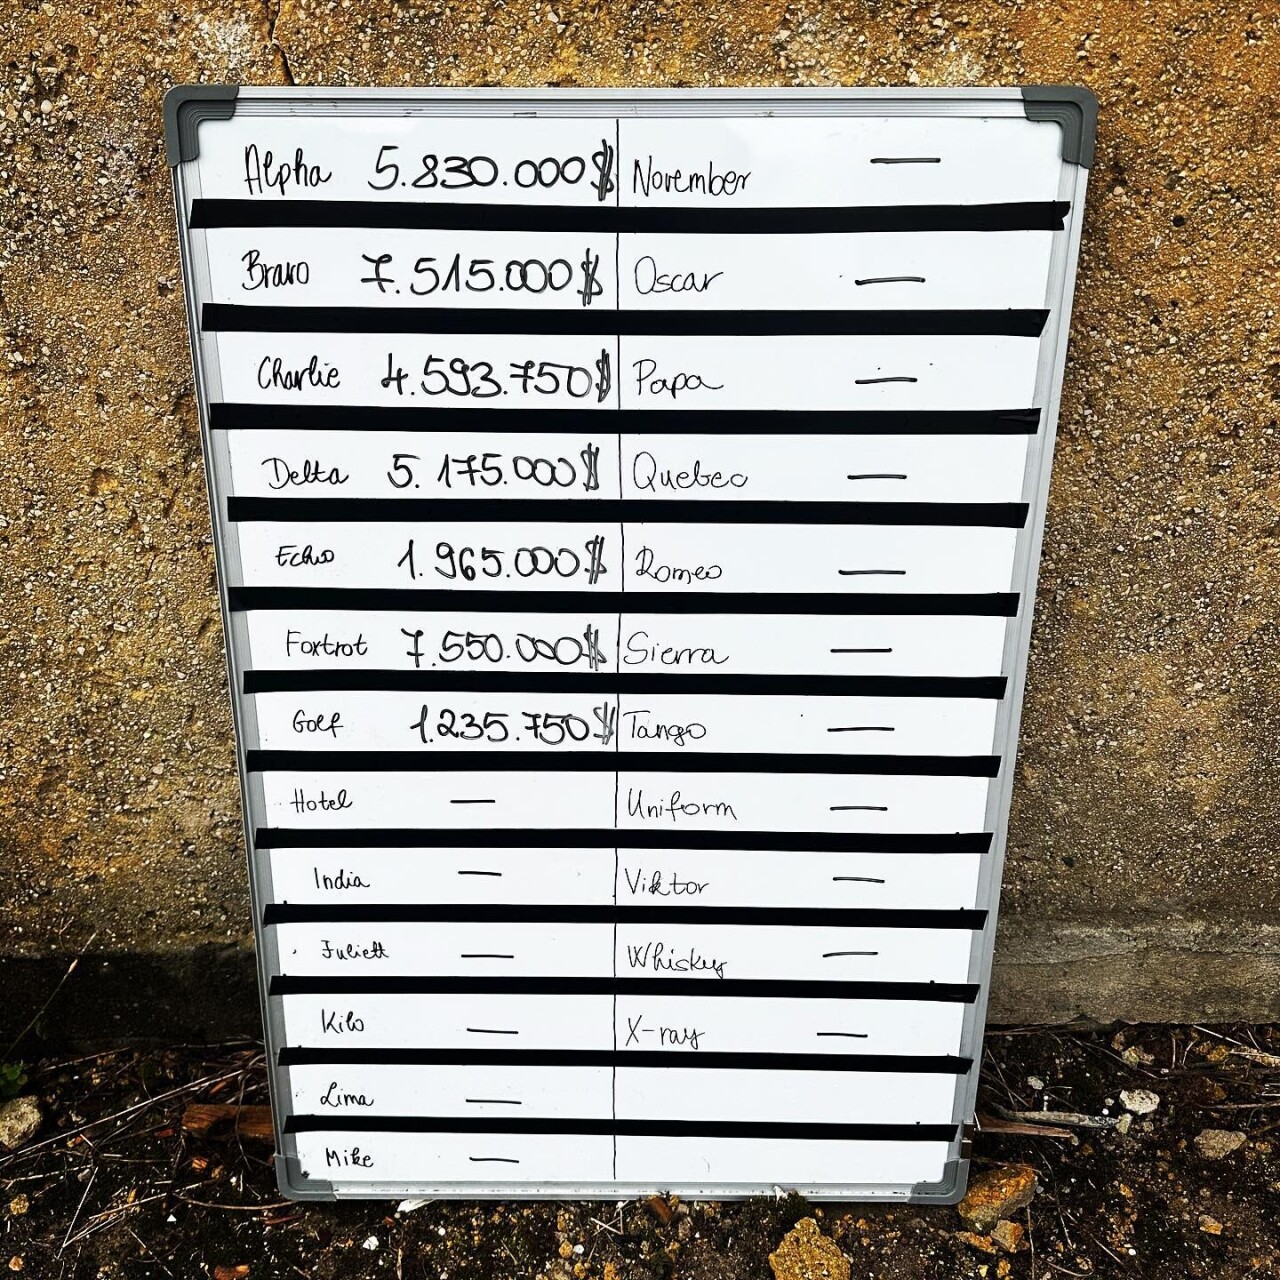 Alpha 5.830.000$ November —
Bravo 7.515.000$ Oscar —
Charlie 4.593.750$ Papa —
Delta 5.175.000$ Quebec —
Echo 1.965.000$ Romeo —
Foxtrot 7.550.000$ Sierra —
Golf 1.235.750$ Tango —
Hotel — Uniform —
India — Viktor —
Juliett — Whiskey —
Kilo — X-ray —
Lima —
Mike —